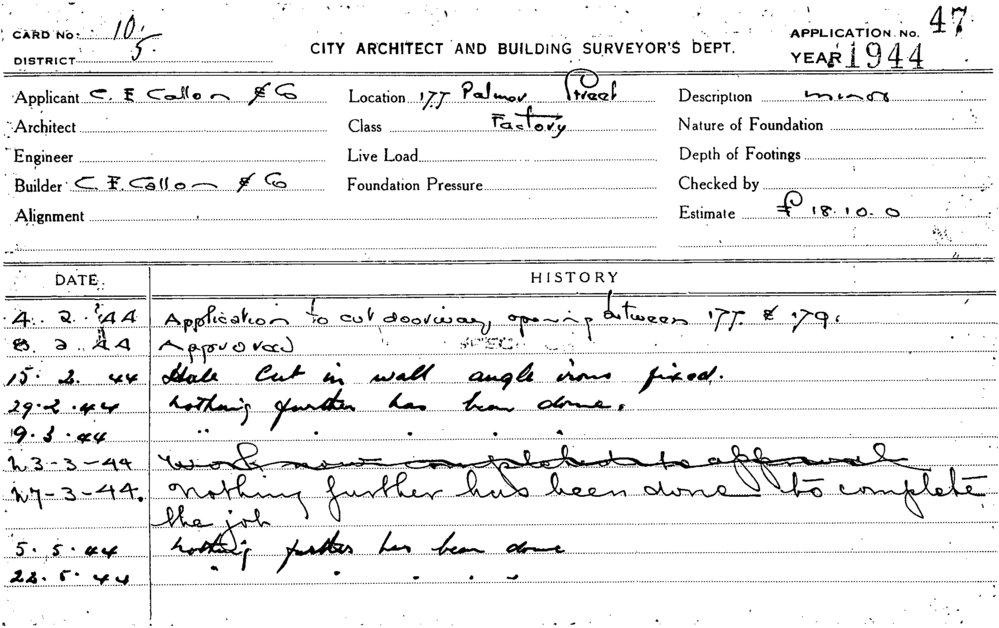 CARD No. 10.
DISTRICT 5
CITY ARCHITECT AND BUILDING SURVEYOR'S DEPT.
APPLICATION No. 47
YEAR 1944
Applicant C. E Callon & Co
Location 177 Palmer Street
Description minor
Architect
Class Factory
Nature of Foundation
Engineer
Live Load
Depth of Footings
Builder C E. Callon & Co
Foundation Pressure
Checked by
Alignment
Estimate £ 18. 10. 0
DATE.
HISTORY
4. 2. 44 Application to cut doorway opening between 177 & 179.
8. 2. 44 Approved
15. 2. 44 Hole cut in wall angle irons fixed.
29. 2. 44 Nothing further has been done.
9. 3. 44 " " " " "
23-3-44 Work now completed to approval
27-3-44. Nothing further has been done to complete
the job
5. 5. 44 Nothing further has been done
22. 5. 44 " " " "